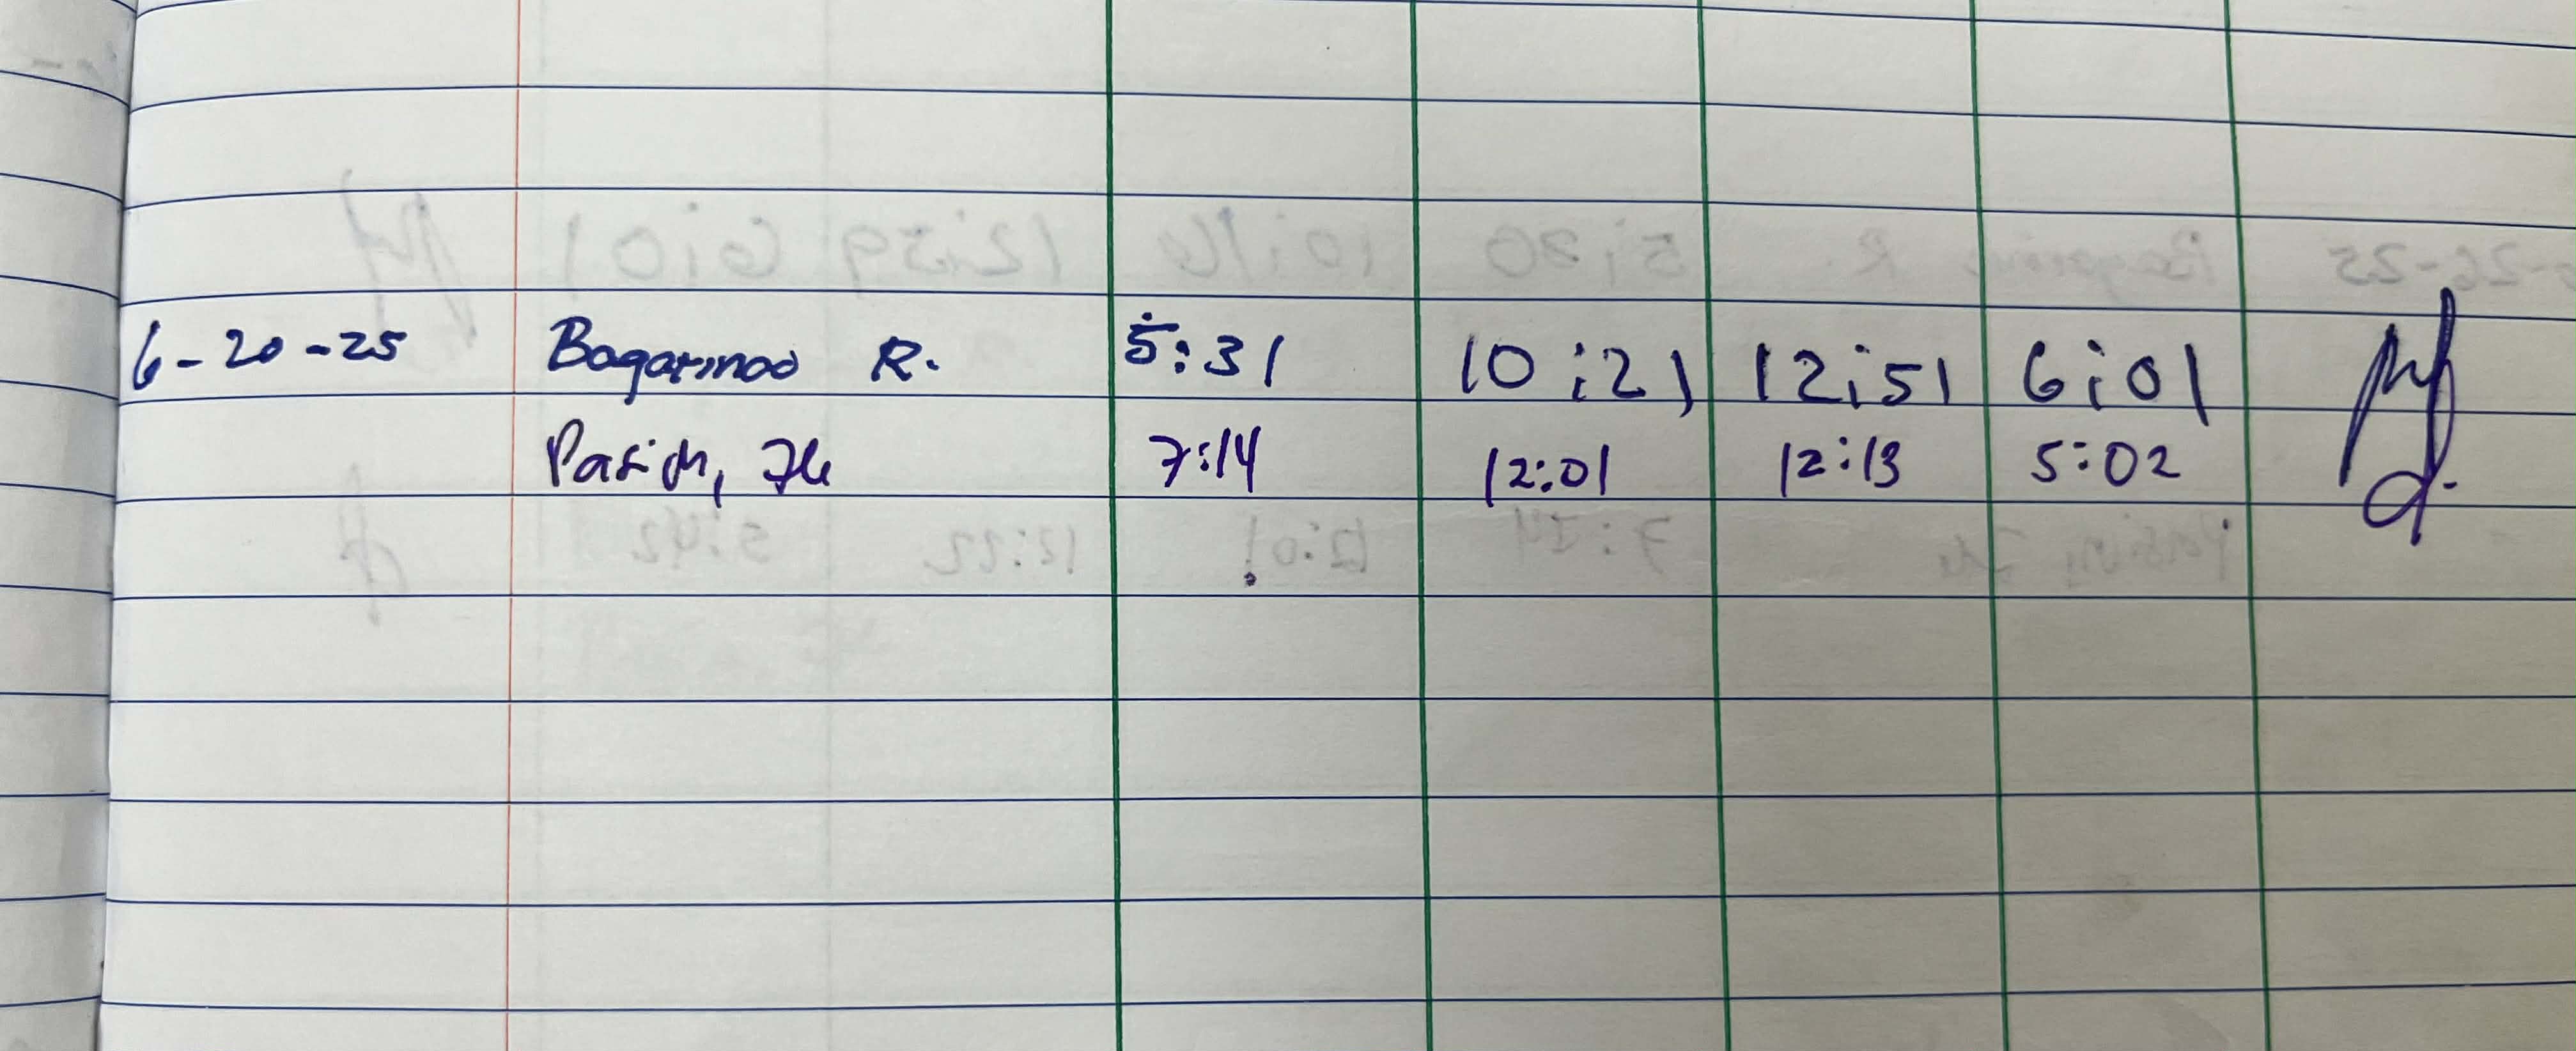 6-20-25 Bagarinao R. 5:31 10:21 12:51 6:01
Pasion, 7:14 12:01 12:13 5:02